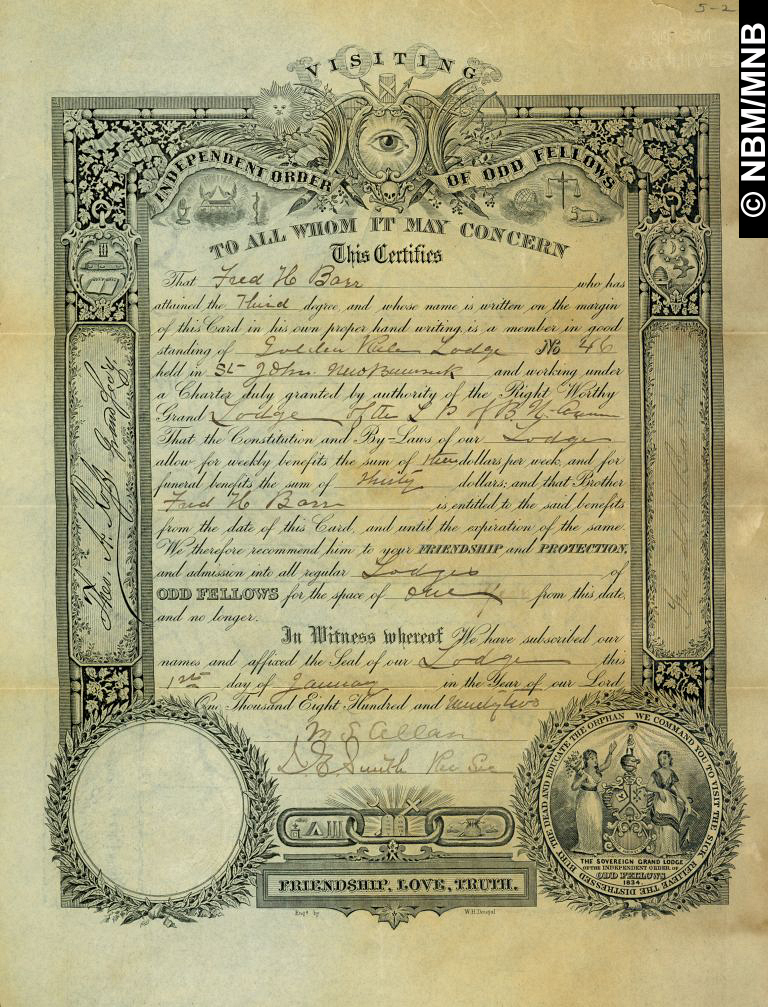 5-2
© NBM/MNB
VISITING
INDEPENDENT ORDER OF ODD FELLOWS
TO ALL WHOM IT MAY CONCERN
This Certifies
That Fred H Barr who has
attained the Third degree, and whose name is written on the margin
of this Card in his own proper hand writing, is a member in good
standing of Golden Rule Lodge No 46
held in St John New Brunswick and working under
a Charter duly granted by authority of the Right Worthy
Grand Lodge of the L P of B N
That the Constitution and By-Laws of our Lodge
allow for weekly benefits the sum of dollars per week, and for
funeral benefits the sum of Thirty dollars; and that Brother
Fred H Barr is entitled to the said benefits
from the date of this Card, and until the expiration of the same.
We therefore recommend him to your FRIENDSHIP and PROTECTION,
and admission into all regular Lodges of
ODD FELLOWS for the space of one from this date,
and no longer.
In Witness whereof We have subscribed our
names and affixed the Seal of our Lodge this
1st day of January in the Year of our Lord
One Thousand Eight Hundred and Ninety two
M S Allan
D E Smith Rec Sec
Theo. A. Ross. Grand Secry.
WE COMMAND YOU TO VISIT THE SICK RELIEVE THE DISTRESSED BURY THE DEAD AND EDUCATE THE ORPHAN
THE SOVEREIGN GRAND LODGE
OF THE INDEPENDENT ORDER OF
ODD FELLOWS
1834
FRIENDSHIP, LOVE, TRUTH.
Engd. by W.H. Dougal